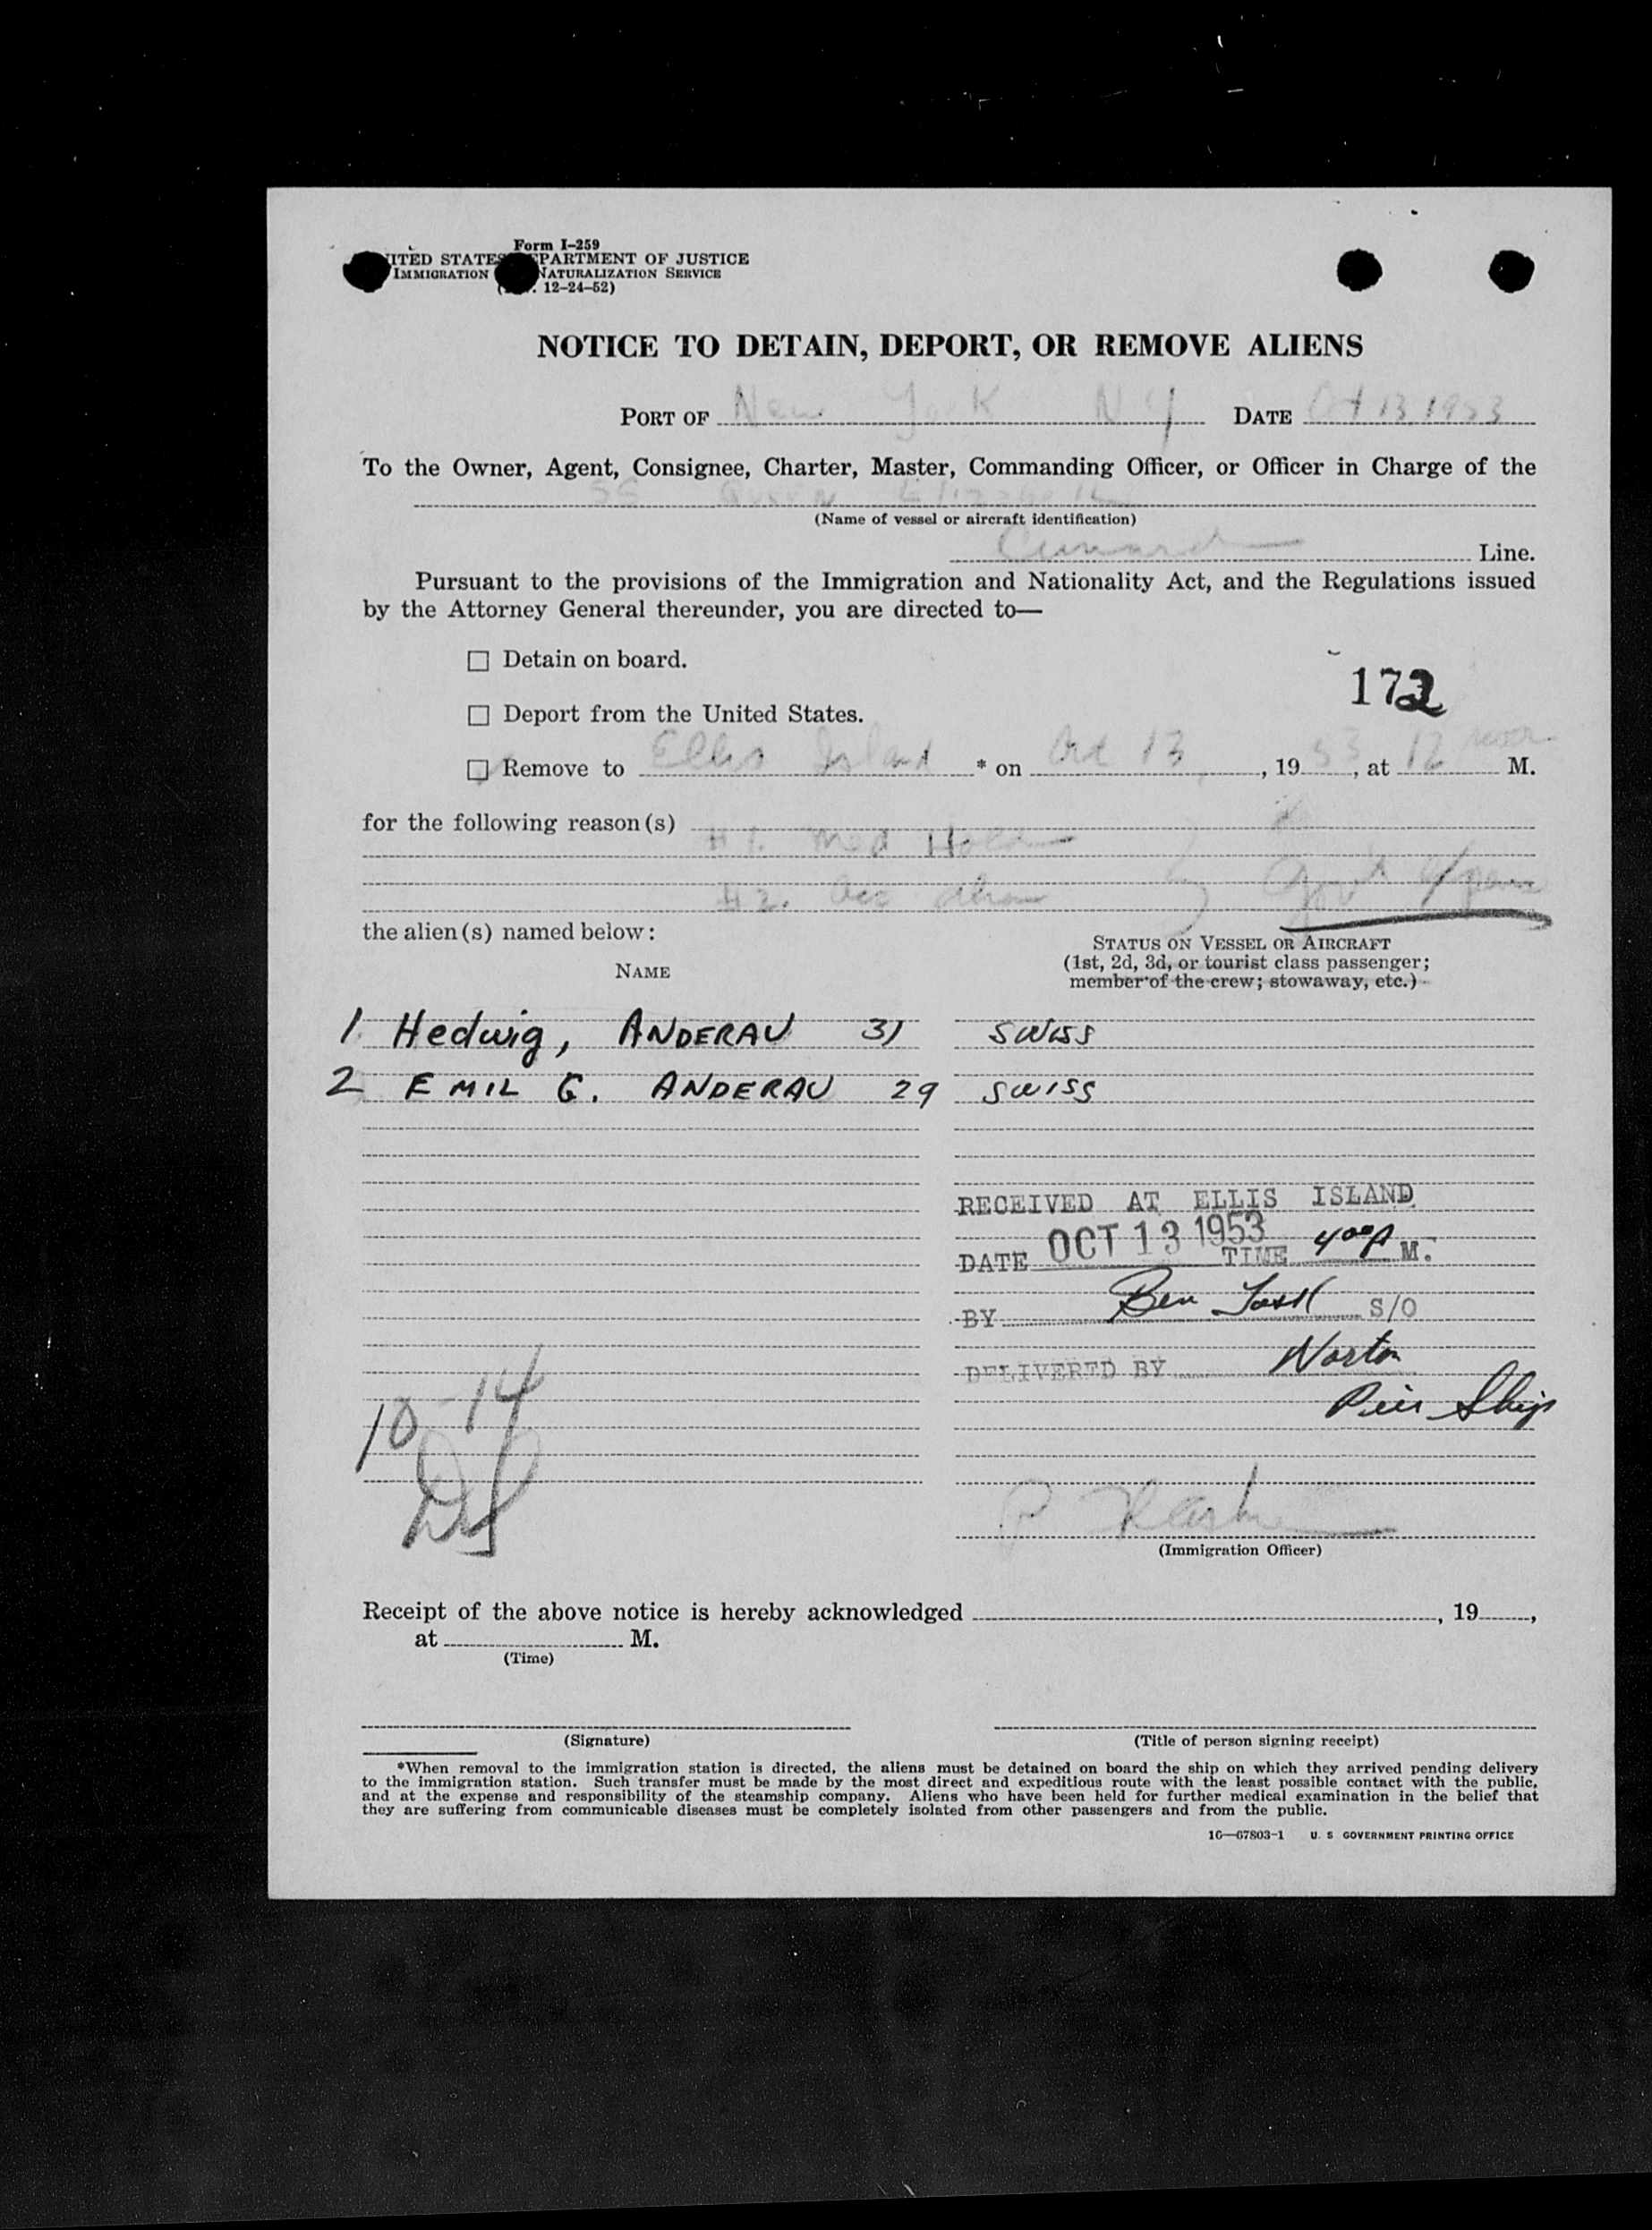 Form I-259
ITED STATES PARTMENT OF JUSTICE
IMMIGRATION NATURALIZATION SERVICE
12-24-52)
NOTICE TO DETAIN, DEPORT, OR REMOVE ALIENS
PORT OF New York NY DATE Oct 13 1953
To the Owner, Agent, Consignee, Charter, Master, Commanding Officer, or Officer in Charge of the
SS Queen Elizabeth
(Name of vessel or aircraft identification)
Cunard Line.
Pursuant to the provisions of the Immigration and Nationality Act, and the Regulations issued
by the Attorney General thereunder, you are directed to—
☐ Detain on board.
172
☐ Deport from the United States.
☐ Remove to Ellis Island * on Oct 13, 1953, at 12 noon M.
for the following reason(s)
#1. Med Hold
#2. Acc Gov't
the alien(s) named below:
NAME
STATUS ON VESSEL OR AIRCRAFT
(1st, 2d, 3d, or tourist class passenger;
member of the crew; stowaway, etc.)
1 Hedwig, ANDERAU 31 SWISS
2 EMIL G. ANDERAU 29 SWISS
RECEIVED AT ELLIS ISLAND
DATE OCT 13 1953 TIME 4 00 P M.
BY Ben S/O
DELIVERED BY Norton
Pier Ship
10-14
(Immigration Officer)
Receipt of the above notice is hereby acknowledged , 19 ,
at M.
(Time)
(Signature) (Title of person signing receipt)
*When removal to the immigration station is directed, the aliens must be detained on board the ship on which they arrived pending delivery
to the immigration station. Such transfer must be made by the most direct and expeditious route with the least possible contact with the public,
and at the expense and responsibility of the steamship company. Aliens who have been held for further medical examination in the belief that
they are suffering from communicable diseases must be completely isolated from other passengers and from the public.
16—67803-1 U. S GOVERNMENT PRINTING OFFICE